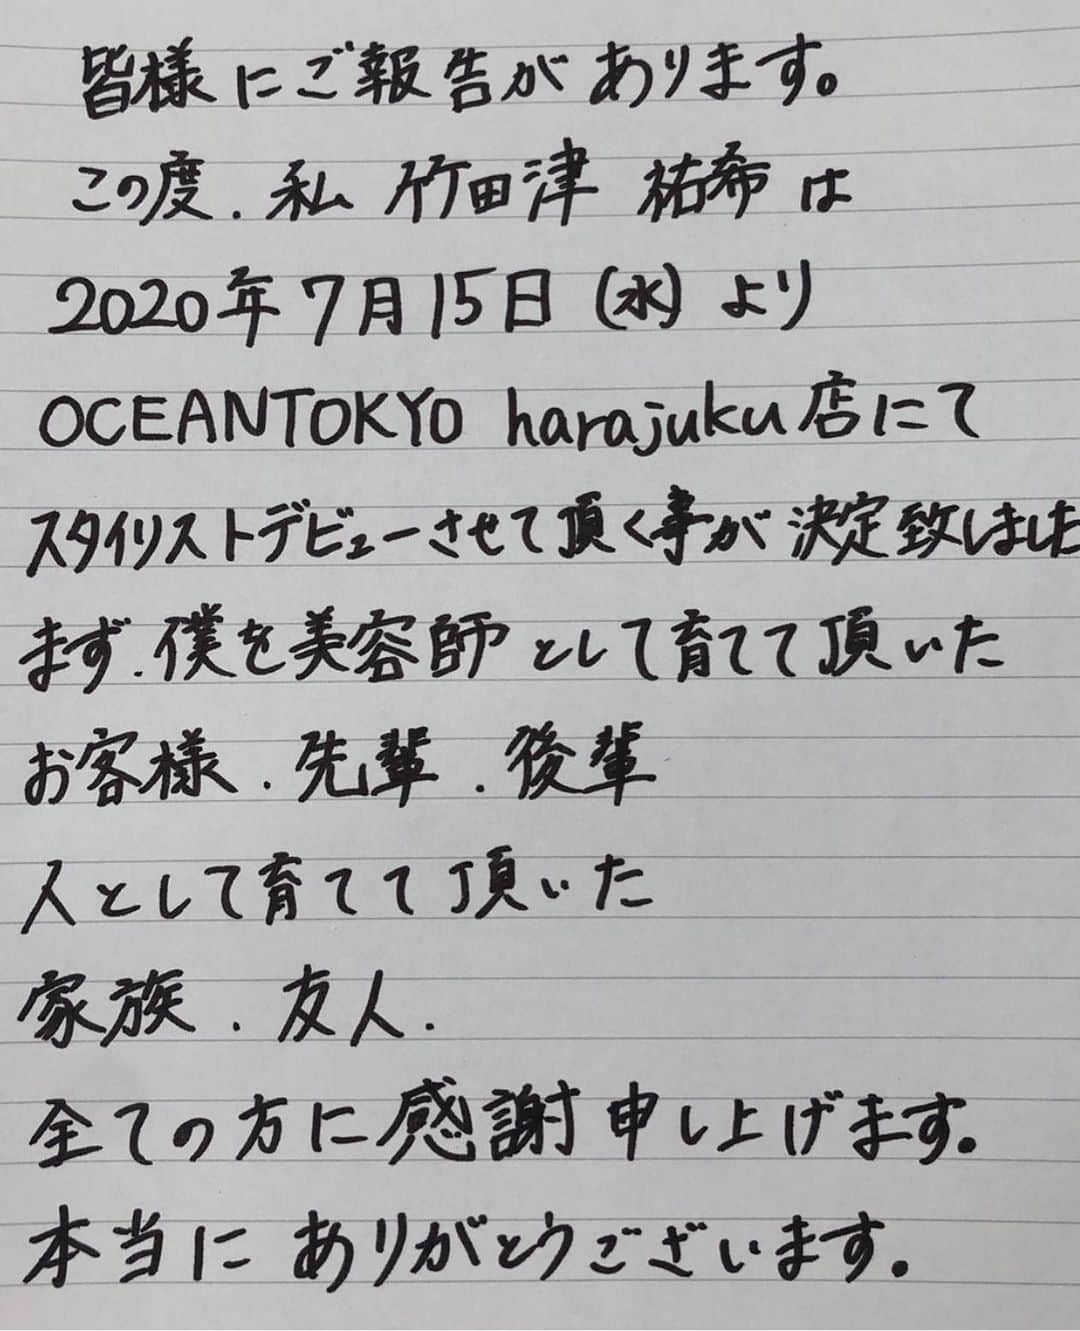 皆様にご報告があります。
この度.私 竹田津 祐希 は
2020年7月15日(水)より
OCEANTOKYO harajuku店にて
スタイリストデビューさせて頂く事が決定致しました
まず.僕を美容師として育てて頂いた
お客様.先輩.後輩
人として育てて頂いた
家族.友人.
全ての方に感謝申し上げます。
本当にありがとうございます。